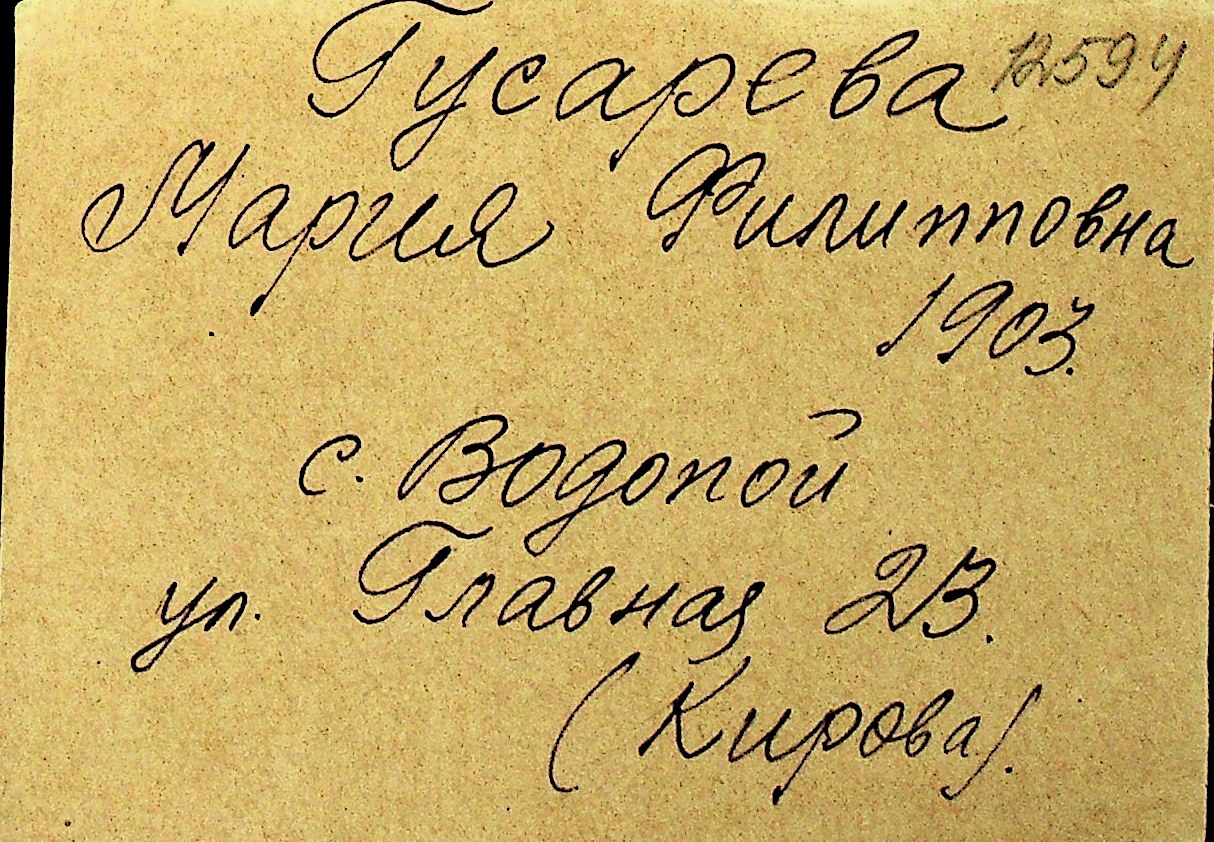 Гусарева 12594
Мария Филипповна
1903.
с. Водопой
ул. Главная 23.
(Кирова).